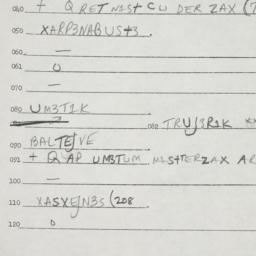 040 + QRET NIST CU DER ZAX (
050 XARP3NABUST3.
060 —
061 O
070 —
080 UM3T1K
TRUJ3R1K
090 BALTEJVE
091 + QAP UMBTUM MISTERZAX AR
100 —
110 XASXEJN3S (208
120 O